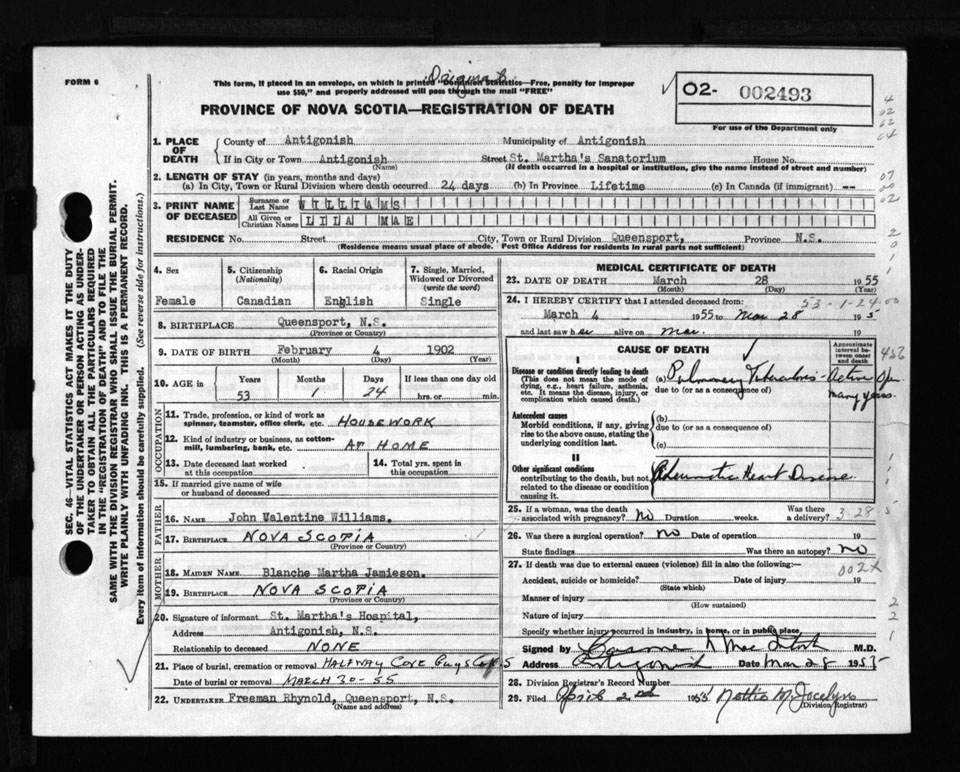 FORM 6
Original
This form, if placed in an envelope, on which is printed "Dominion Statistics—Free, penalty for improper
use $50," and properly addressed will pass through the mail "FREE"
PROVINCE OF NOVA SCOTIA—REGISTRATION OF DEATH
02- 002493
For use of the Department only
SEC. 46—VITAL STATISTICS ACT MAKES IT THE DUTY
OF THE UNDERTAKER OR PERSON ACTING AS UNDER-
TAKER TO OBTAIN ALL THE PARTICULARS REQUIRED
IN THE "REGISTRATION OF DEATH" AND TO FILE THE
SAME WITH THE DIVISION REGISTRAR WHO SHALL ISSUE THE BURIAL PERMIT.
WRITE PLAINLY WITH UNFADING INK. THIS IS A PERMANENT RECORD.
Every item of information should be carefully supplied. (See reverse side for instructions.)
1. PLACE OF DEATH
County of Antigonish Municipality of Antigonish
If in City or Town Antigonish Street St. Martha's Sanatorium House No.
(Name) (If death occurred in a hospital or institution, give the name instead of street and number)
2. LENGTH OF STAY (in years, months and days)
(a) In City, Town or Rural Division where death occurred 24 days (b) In Province Lifetime (c) In Canada (if immigrant) --
3. PRINT NAME OF DECEASED
Surname or Last Name WILLIAMS
All Given or Christian Names LILA MAE
RESIDENCE No. Street City, Town or Rural Division Queensport, Province N.S.
(Residence means usual place of abode. Post Office Address for residents in rural parts not sufficient)
4. Sex
Female
5. Citizenship (Nationality)
Canadian
6. Racial Origin
English
7. Single, Married, Widowed or Divorced (write the word)
Single
8. BIRTHPLACE Queensport, N.S.
(Province or Country)
9. DATE OF BIRTH February 4 1902
(Month) (Day) (Year)
10. AGE IN Years Months Days If less than one day old
53 1 24 hrs. or min.
OCCUPATION
11. Trade, profession, or kind of work as
spinner, teamster, office clerk, etc. HOUSEWORK
12. Kind of industry or business, as cotton-
mill, lumbering, bank, etc. AT HOME
13. Date deceased last worked at this occupation
14. Total yrs. spent in this occupation
15. If married give name of wife
or husband of deceased
FATHER
16. NAME John Valentine Williams.
17. BIRTHPLACE NOVA SCOTIA
(Province or Country)
MOTHER
18. MAIDEN NAME Blanche Martha Jamieson.
19. BIRTHPLACE NOVA SCOTIA
(Province or Country)
20. Signature of informant St. Martha's Hospital,
Address Antigonish, N.S.
Relationship to deceased NONE
21. Place of burial, cremation or removal HALFWAY COVE GUYS CO N S
Date of burial or removal MARCH 30-55
22. UNDERTAKER Freeman Rhynold, Queensport, N.S.
(Name and address)
MEDICAL CERTIFICATE OF DEATH
23. DATE OF DEATH March 28 1955
(Month) (Day) (Year)
24. I HEREBY CERTIFY that I attended deceased from:
53-1-24
March 4 1955 to Mar 28 1955
and last saw her alive on Mar. 19
CAUSE OF DEATH
Approximate interval between onset and death
I
Disease or condition directly leading to death
(This does not mean the mode of dying, e.g., heart failure, asthenia, etc. It means the disease, injury, or complication which caused death.)
(a) Pulmonary Tuberculosis - Active Open
due to (or as a consequence of)
many years.
Antecedent causes
Morbid conditions, if any, giving rise to the above cause, stating the underlying condition last.
(b)
due to (or as a consequence of)
(c)
II
Other significant conditions
contributing to the death, but not related to the disease or condition causing it.
Rheumatic Heart Disease
25. If a woman, was the death associated with pregnancy? No Duration weeks. Was there a delivery?
3-28-5
26. Was there a surgical operation? no Date of operation 19
State findings Was there an autopsy? no
27. If death was due to external causes (violence) fill in also the following:—
002X
Accident, suicide or homicide? Date of injury 19
(State which)
Manner of injury
(How sustained)
Nature of injury
Specify whether injury occurred in industry, in home, or in public place
Signed by MacIntosh M.D.
Address Antigonish Date Mar 28 1955
28. Division Registrar's Record Number
29. Filed April 2nd 1955
(Division Registrar)